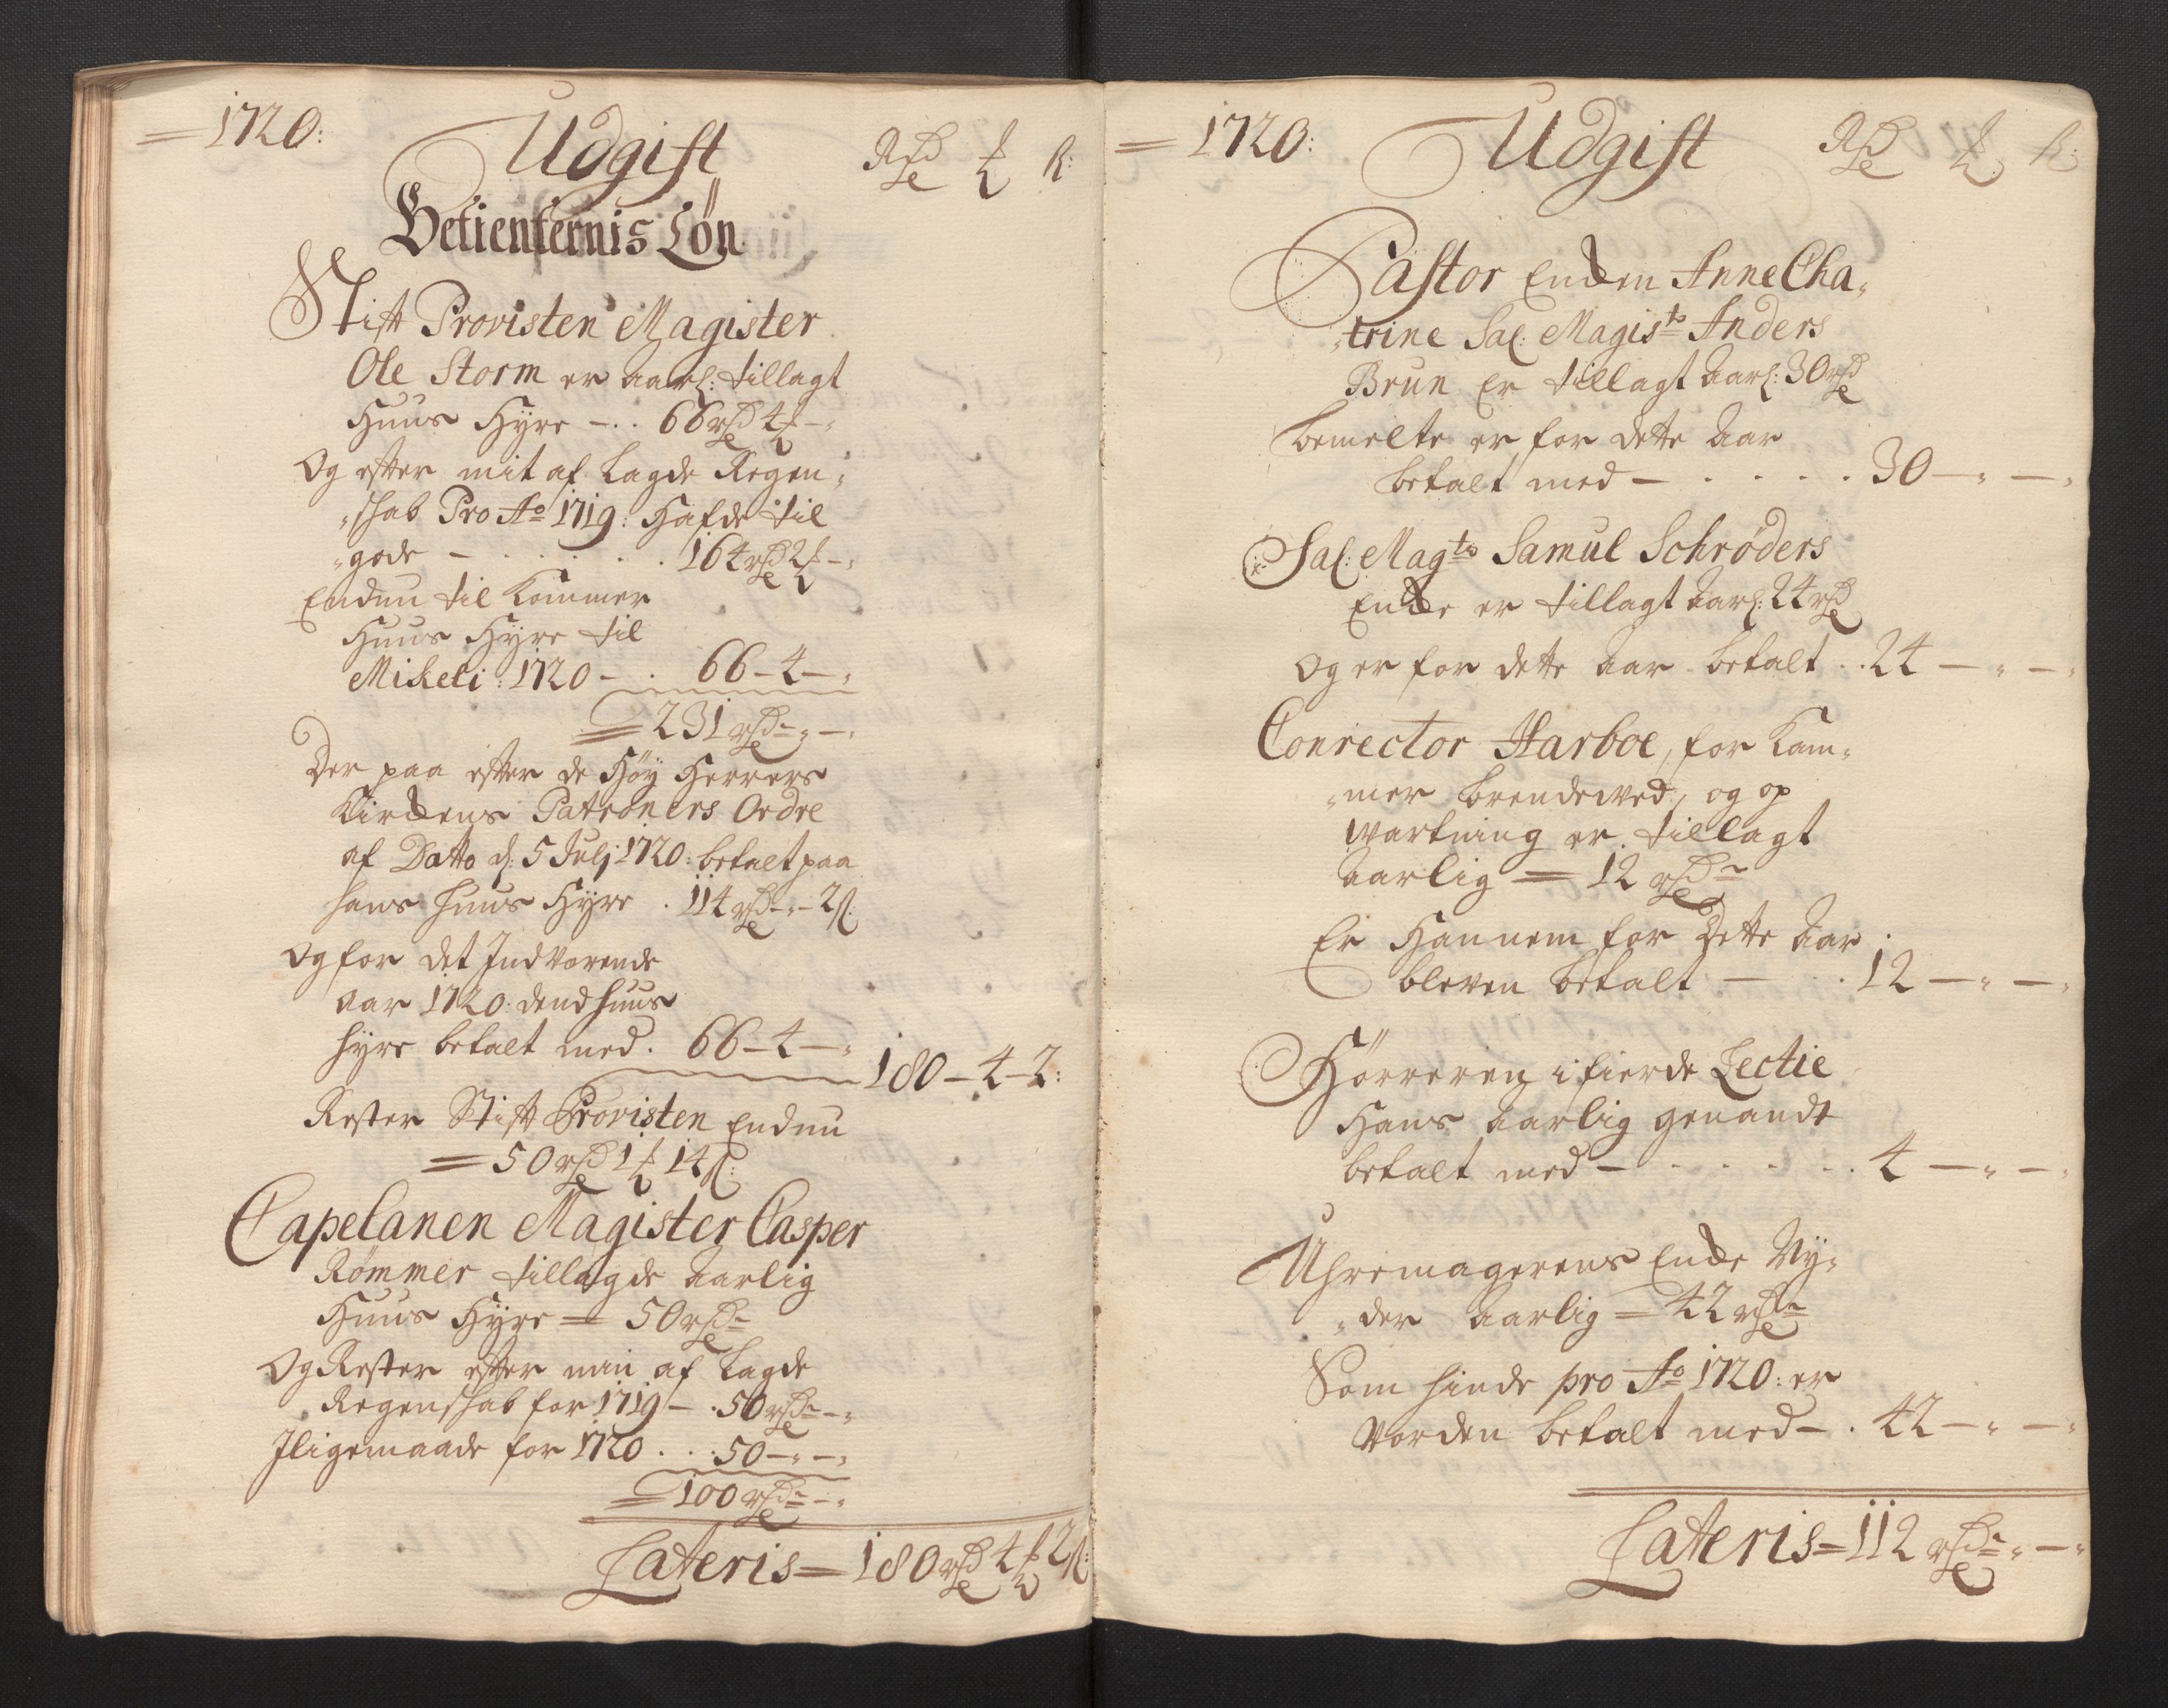 1720:
Udgift
Rdr ß
Betienternis Lön
Stift Provisten Magister
Ole Storm er aarl: tillagt
Huus Hyre - . . 66 rdr 4
Og efter mit af lagde Regen„
„skab Pro Ao 1719: hafde til
„gode - . . . . . 164 rdr 2
Endnu til kommer
Huus Hyre til
Mikeli: 1720 - . 66 - 4 -
= 231 rdr
Der paa efter de Höy Herrers
Kirckens Patroners Ordre
af Dato d: 5 Julj 1720: betalt paa
hans huus Hyre . 114 rdr - „ - 2 ß
Og for det Indverende
aar 1720: dend huus
hyre betalt med . 66 - 4 -
180 - 4 - 2:
Rester Stift Provisten Endnu
= 50 rdr 1 14 ß:
Capelanen Magister Casper
Römmer tillagde aarlig
Huus Hyre = 50 rdr
Og Rester efter min af lagde
Regenskab for 1719 - . 50 rdr
Iligemaade for 1720 . . . 50 - „ -
= 100 rdr
Lateris = 180 rdr 4 2 ß:
1720:
Udgift
Rdr ß
Pastor Encken Anne Cha„
„trine Sal: Magist Anders
Brun Er tillagt aarl: 30 rdr
bemelte er for dette aar
betalt med - . . . . . 30 - „ -
Sal: Mag Samul Schröders
Encke er tillagt aarl: 24 rdr
Og er for dette aar betalt . . 24 - „ -
Conrector Harboe, for Kam„
„mer brendeved, og op
wartning er tillagt
aarlig = 12 rdr
Er Hannem for Dette aar
bleven betalt - . 12 - „ -
Hörreren i fierde Lectie
Hans aarlig genandt
betalt med - . . . . . 4 - „ -
Uhrmagerens Encke Ny„
„der aarlig = 42 rdr
Som hinde pro Ao 1720: er
vorden betalt med - . 42 - „ -
Lateris = 112 rdr